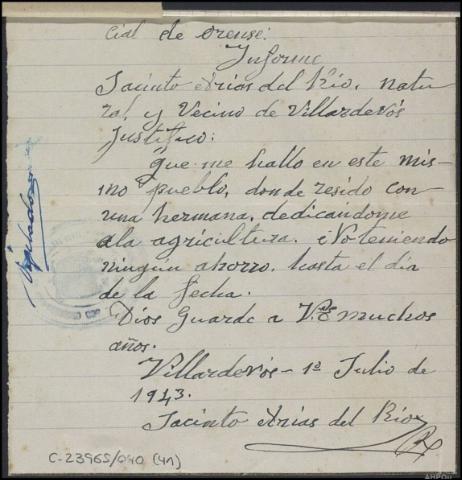 cial de orense:
Informe
Jacinto Arias del Río, natu-
ral, y Vecino de Villardevós
Justifico:
que me hallo en este mis-
mo pueblo, donde resido con
una hermana, dedicandome
ala agricultura. No teniendo
ningún ahorro, hasta el dia
de la fecha.
Dios Guarde a V.E muchos
años.
Villardevós - 1º Julio de
1943.
Jacinto Arias del Río
C-23965/040 (41)
AHPOU